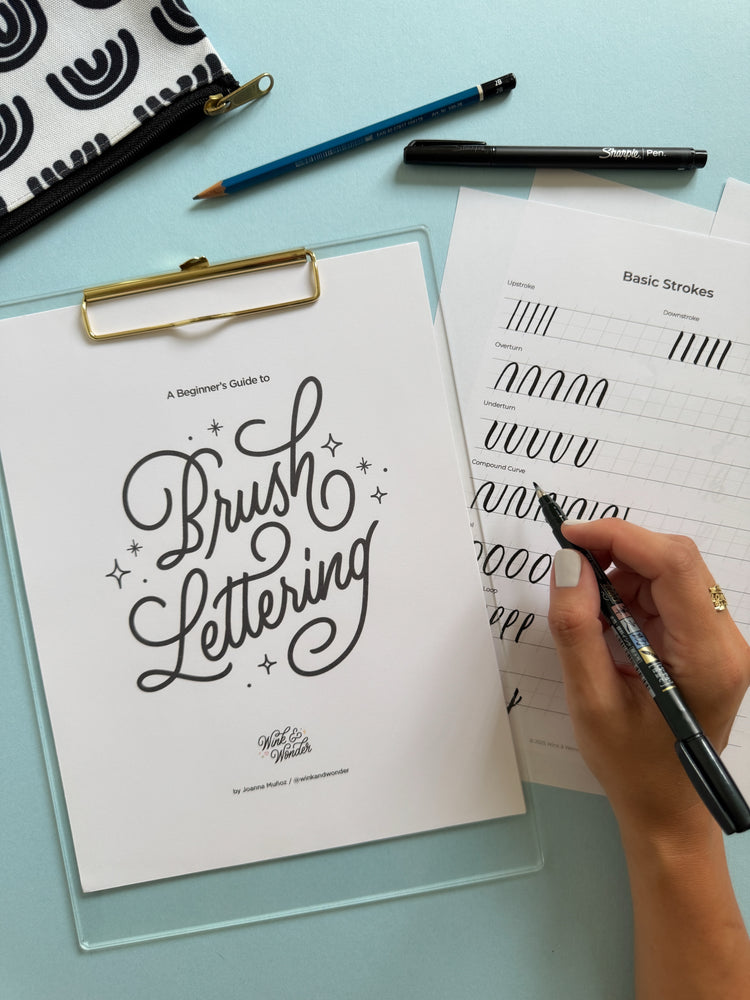 2B
Sharpie Pen.
A Beginner's Guide to
Brush
Lettering
Wink &
Wonder
by Joanna Muñoz / @winkandwonder
Basic Strokes
Upstroke
Downstroke
Overturn
Underturn
Compound Curve
Loop